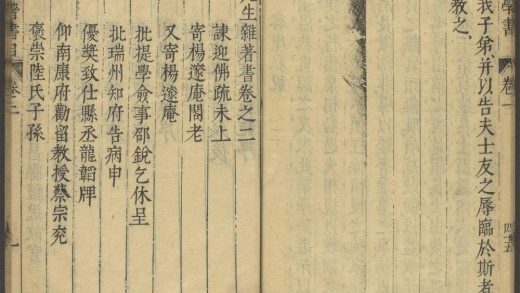 學書 卷一
我子弟并以告夫士友之辱臨於斯者
教之
生雜著書卷之二
諫迎佛疏未上
寄楊邃庵閣老
又寄楊邃庵
批提學僉事邵銳乞休呈
批瑞州知府告病申
優奬致仕縣丞龍韜牌
仰南康府勸留教授蔡宗兗
褒崇陸氏子孫
書目 卷二